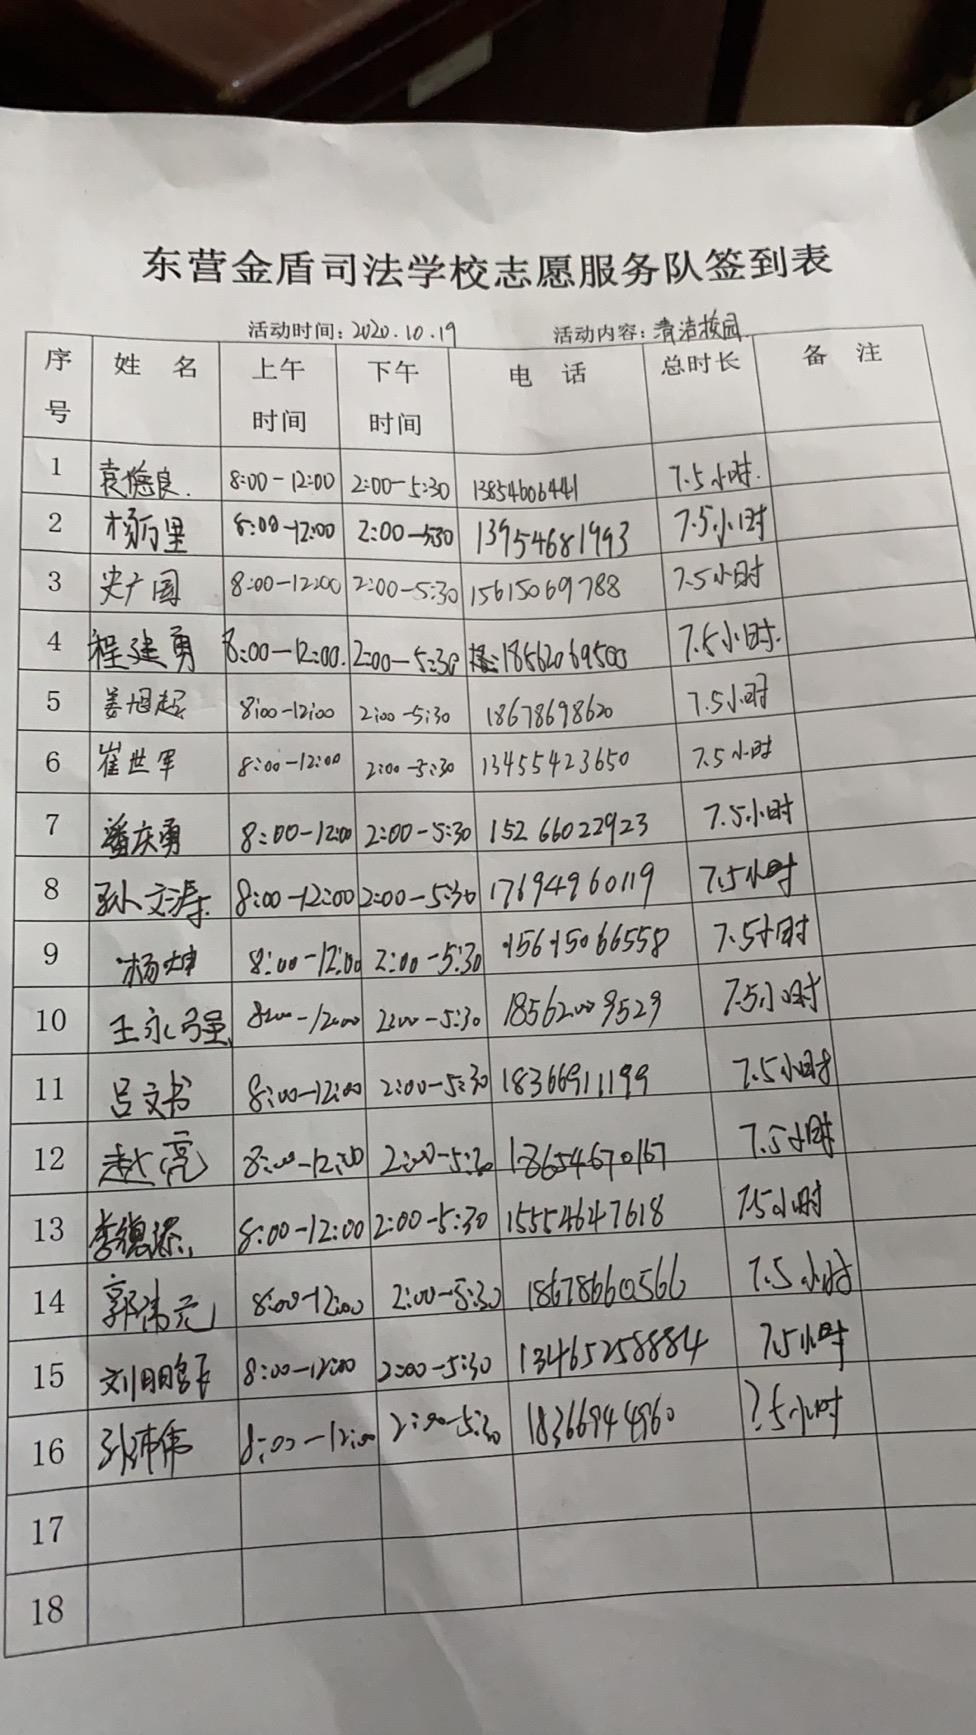 东营金盾司法学校志愿服务队签到表
活动时间：2020.10.19 活动内容：清洁校园
序号 姓 名 上午时间 下午时间 电 话 总时长 备 注
1 袁德良 8:00-12:00 2:00-5:30 13854606441 7.5小时.
2 杨万里 8:00-12:00 2:00-5:30 13954681993 7.5小时
3 史广国 8:00-12:00 2:00-5:30 15615069788 7.5小时
4 程建勇 8:00-12:00. 2:00-5:30 18562069500 7.5小时.
5 姜旭起 8:00-12:00 2:00-5:30 18678698620 7.5小时
6 崔世军 8:00-12:00 2:00-5:30 13455423650 7.5小时
7 潘庆勇 8:00-12:00 2:00-5:30 15266022923 7.5小时
8 孙文涛 8:00-12:00 2:00-5:30 17694960119 7.5小时
9 杨坤 8:00-12:00 2:00-5:30 15615066558 7.5小时
10 王永强 8:00-12:00 2:00-5:30 18562009529 7.5小时
11 吕文书 8:00-12:00 2:00-5:30 18366911199 7.5小时
12 赵亮 8:00-12:00 2:00-5:30 18654670167 7.5小时
13 李德 8:00-12:00 2:00-5:30 15554647618 7.5小时
14 郭伟元 8:00-12:00 2:00-5:30 18678660566 7.5小时
15 刘 8:00-12:00 2:00-5:30 13465258884 7.5小时
16 伟 8:00-12:00 2:00-5:30 18366944960 7.5小时
17
18